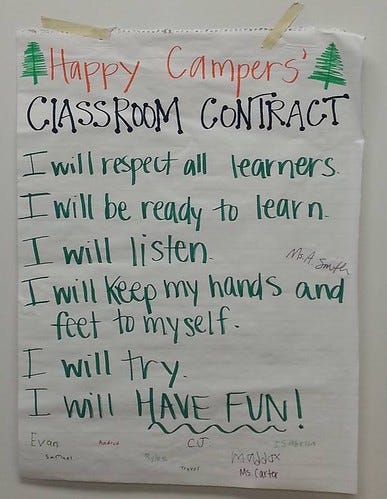 Happy Campers'
CLASSROOM CONTRACT
I will respect all learners.
I will be ready to learn.
I will listen.
Ms. A. Smith
I will keep my hands and
feet to myself.
I will try.
I will HAVE FUN!
Evan Andrew C.J.
Samuel Rylee Travis Maddox
Ms. Carter